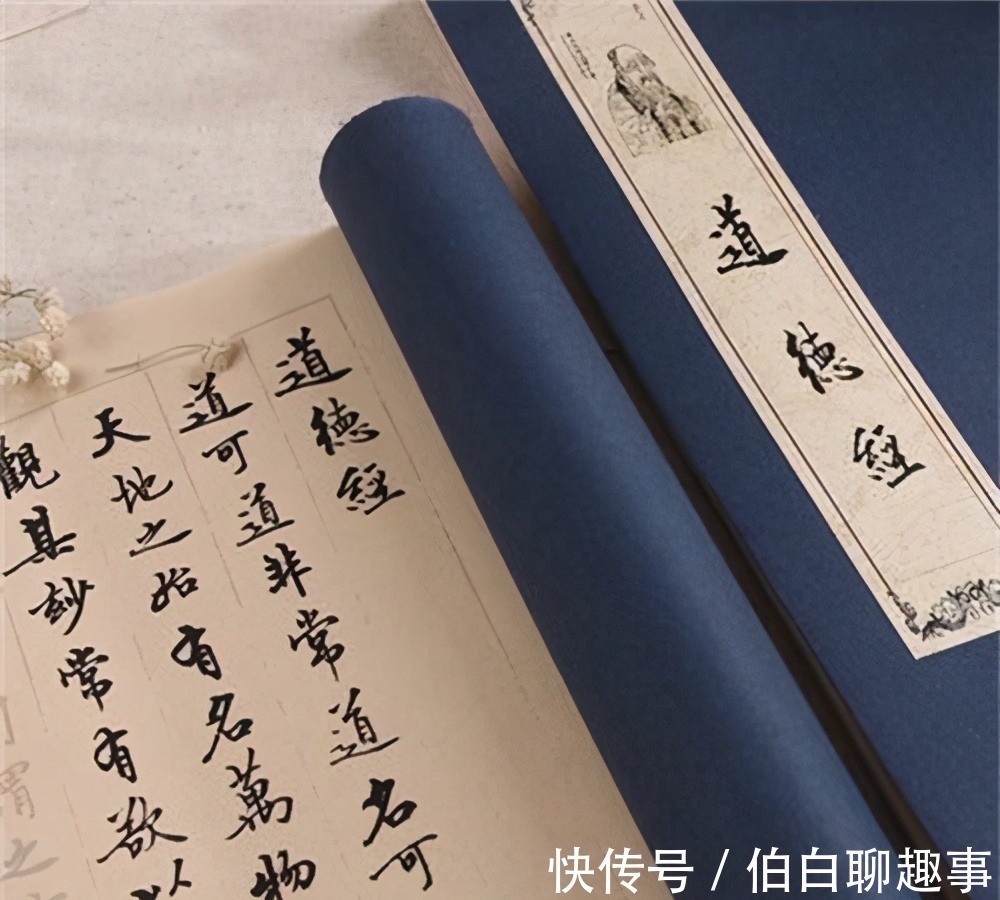 道德經
道德經
道可道非常道名可
天地之始有名萬物
觀其妙常有欲以
谓之
快传号 / 伯白聊趣事